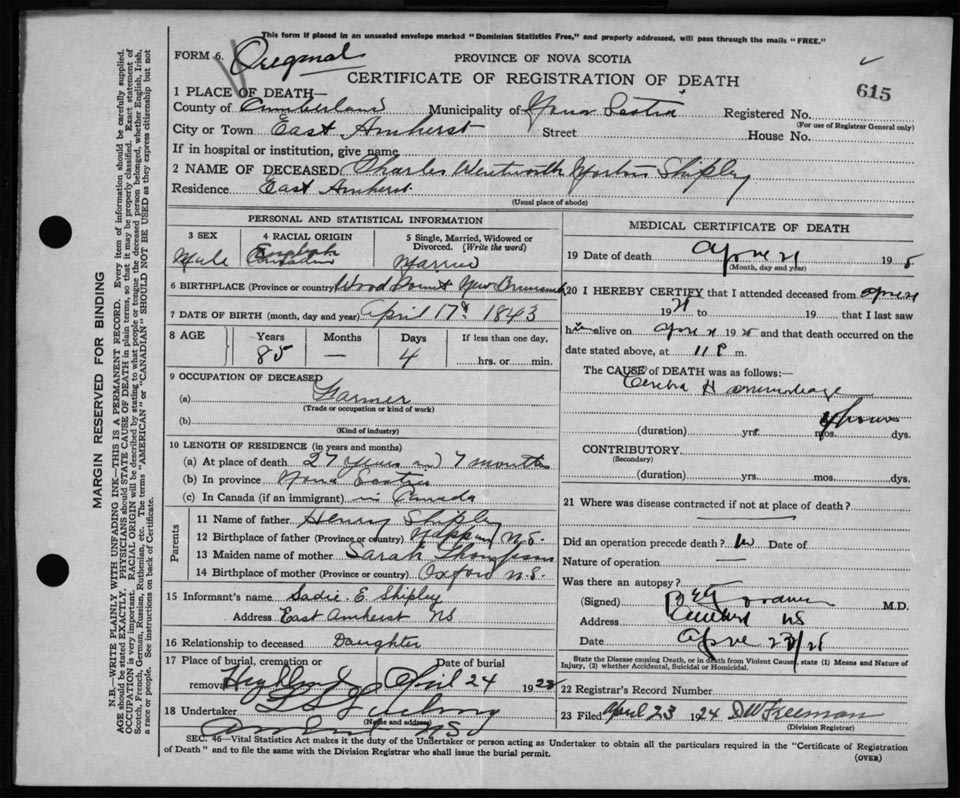 This form if placed in an unsealed envelope marked "Dominion Statistics Free," and properly addressed, will pass through the mails "FREE."
FORM 6. Original
PROVINCE OF NOVA SCOTIA
CERTIFICATE OF REGISTRATION OF DEATH
615
1 PLACE OF DEATH—
County of Cumberland Municipality of Nova Scotia Registered No.
(For use of Registrar General only)
City or Town East Amherst Street House No.
If in hospital or institution, give name
2 NAME OF DECEASED Charles Wentworth Shipley
Residence East Amherst
(Usual place of abode)
PERSONAL AND STATISTICAL INFORMATION
3 SEX 4 RACIAL ORIGIN 5 Single, Married, Widowed or Divorced. (Write the word)
Male English Canadian Married
6 BIRTHPLACE (Province or country) Wood Point New Brunswick
7 DATE OF BIRTH (month, day and year) April 17th 1843
8 AGE Years Months Days If less than one day,
85 — 4 hrs. or min.
9 OCCUPATION OF DECEASED
(a) Farmer
(Trade or occupation or kind of work)
(b)
(Kind of industry)
10 LENGTH OF RESIDENCE (in years and months)
(a) At place of death 27 years and 7 months
(b) In province Nova Scotia
(c) In Canada (if an immigrant) in Canada
Parents
11 Name of father Henry Shipley
12 Birthplace of father (Province or country) Nappan N.S.
13 Maiden name of mother Sarah Thompson
14 Birthplace of mother (Province or country) Oxford N.S.
15 Informant's name Sadie E. Shipley
Address East Amherst NS
16 Relationship to deceased Daughter
17 Place of burial, cremation or removal Highland Date of burial April 24 1928
18 Undertaker
(Name and address)
Amherst NS
MEDICAL CERTIFICATE OF DEATH
19 Date of death April 21 19
(Month, day and year)
20 I HEREBY CERTIFY that I attended deceased from April
21 19 to 19 that I last saw
him alive on April 21 19 28 and that death occurred on the
date stated above, at 11 P. m.
The CAUSE of DEATH was as follows:—
Cerebral Hemorrhage
4 hours
(duration) yrs. mos. dys.
CONTRIBUTORY
(Secondary)
(duration) yrs. mos. dys.
21 Where was disease contracted if not at place of death?
Did an operation precede death? No Date of
Nature of operation —
Was there an autopsy?
(Signed) M.D.
Address Amherst NS
Date April 23/28
State the Disease causing Death, or in death from Violent Cause, state (1) Means and Nature of Injury, (2) whether Accidental, Suicidal or Homicidal.
22 Registrar's Record Number
23 Filed April 23 1924 D W Freeman
(Division Registrar)
SEC. 46—Vital Statistics Act makes it the duty of the Undertaker or person acting as Undertaker to obtain all the particulars required in the "Certificate of Registration
of Death" and to file the same with the Division Registrar who shall issue the burial permit.
(OVER)
MARGIN RESERVED FOR BINDING
N.B.—WRITE PLAINLY WITH UNFADING INK—THIS IS A PERMANENT RECORD. Every item of information should be carefully supplied.
AGE should be stated EXACTLY. PHYSICIANS should STATE CAUSE OF DEATH in plain terms, so that it may be properly classified. Exact statement of
OCCUPATION is very important. RACIAL ORIGIN will be described by stating to what people or tongue the deceased person belonged, whether English, Irish,
Scotch, French, German, Russian, Ruthenian, etc. The terms "AMERICAN" or "CANADIAN" SHOULD NOT BE USED as they express citizenship but not
a race or people. See instructions on back of Certificate.